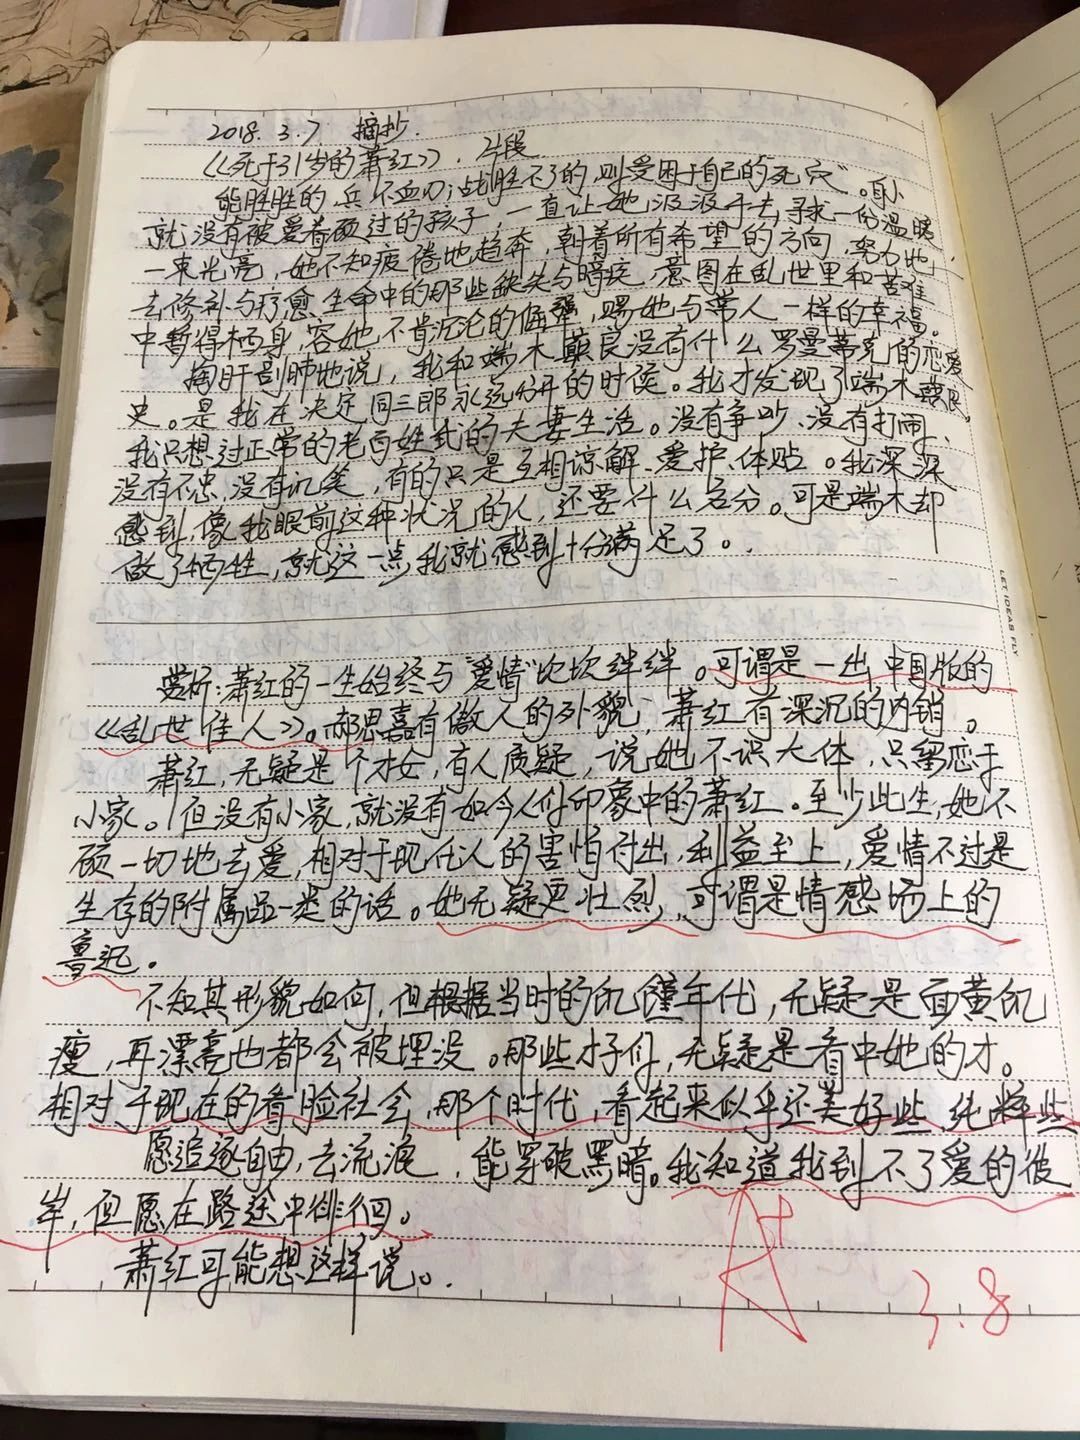 2018. 3.7. 摘抄.
《死于31岁的萧红》. 片段
能胜胜的,兵不血刃;战胜不了的,则受困于自己的死穴”。自小
就没有被爱着顾过的孩子,一直让她汲汲于去寻求一份温暖
一束光亮,她不知疲倦地趋奔,朝着所有希望的方向,努力地
去修补与疗愈生命中的那些缺失与暗疾,意图在乱世里和苦难
中暂得栖身,容她不肯沉沦的倔强,赐她与常人一样的幸福。
掏肝剖肺地说,我和端木蕻良没有什么罗曼蒂克的恋爱
史。是我在决定同三郎永远分开的时侯。我才发现了端木蕻良。
我只想过正常的老百姓式的夫妻生活。没有争吵、没有打闹、
没有不忠、没有讥笑,有的只是互相谅解、爱护、体贴。我深深
感到,像我眼前这种状况的人,还要什么名分。可是端木却
做了牺牲,就这一点我就感到十分满足了。
LET IDEAS FLY
赏析:萧红的一生始终与“爱情”坎坎绊绊。可谓是一出中国版的
《乱世佳人》。郝思嘉有傲人的外貌,萧红有深沉的内销。
萧红,无疑是个才女,有人质疑,说她不识大体,只留恋于
小家。但没有小家,就没有如今人们印象中的萧红。至少此生,她不
顾一切地去爱,相对于现代人的害怕付出,利益至上,爱情不过是
生存的附属品一类的话。她无疑更壮烈,可谓是情感场上的
鲁迅。
不知其形貌如何,但根据当时的饥馑年代,无疑是面黄饥
瘦,再漂亮也都会被埋没。那些才子们,无疑是看中她的才。
相对于现在的看脸社会,那个时代,看起来似乎还美好些,纯粹些
愿追逐自由,去流浪,能穿破黑暗。我知道我到不了爱的彼
岸,但愿在路途中徘徊。
萧红可能想这样说。.
A+
3.8